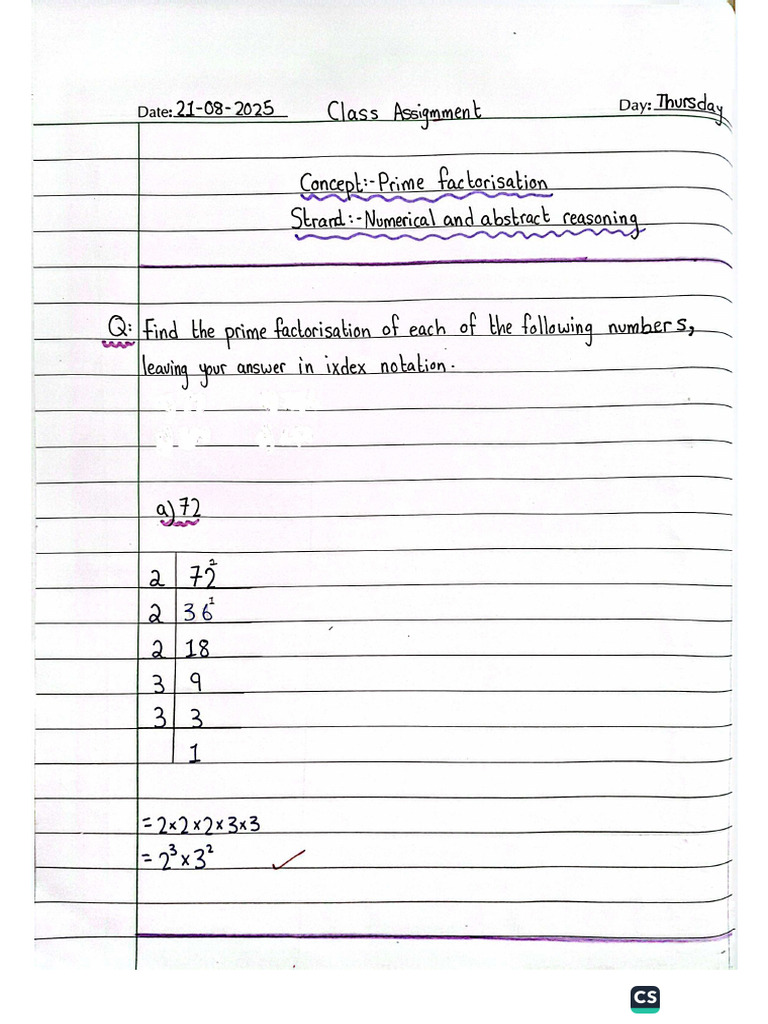 Date: 21-08-2025 Class Assignment Day: Thursday
Concept:- Prime factorisation
Strard:- Numerical and abstract reasoning
Q: Find the prime factorisation of each of the following numbers,
leaving your answer in ixdex notation.
a) 72
2 | 72²
2 | 36¹
2 | 18
3 | 9
3 | 3
1
= 2×2×2×3×3
= 2³×3² ✓
CS